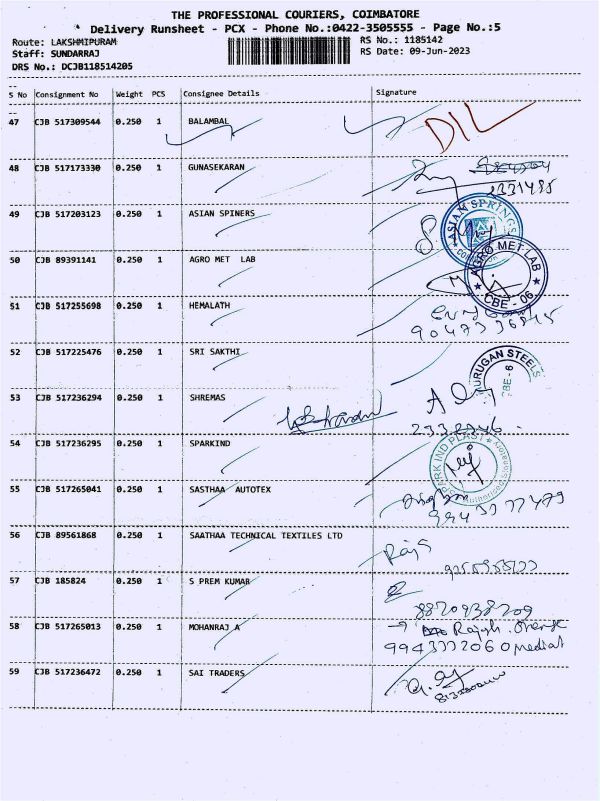 THE PROFESSIONAL COURIERS, COIMBATORE
Delivery Runsheet - PCX - Phone No.:0422-3505555 - Page No.:5
Route: LAKSHMIPURAM RS No.: 1185142
Staff: SUNDARRAJ RS Date: 09-Jun-2023
DRS No.: DCJB118514205
S No Consignment No Weight PCS Consignee Details Signature
47 CJB 517309544 0.250 1 BALAMBAL DIL
48 CJB 517173330 0.250 1 GUNASEKARAN
2331485
49 CJB 517203123 0.250 1 ASIAN SPINERS
ASIAN SPRINGS
50 CJB 89391141 0.250 1 AGRO MET LAB
AGRO MET LAB
CBE - 06
51 CJB 517255698 0.250 1 HEMALATH
52 CJB 517225476 0.250 1 SRI SAKTHI
MURUGAN STEELS
CBE-6
53 CJB 517236294 0.250 1 SHREMAS
54 CJB 517236295 0.250 1 SPARKIND
SPARKIND PLAST
Authorised Signatory
55 CJB 517265041 0.250 1 SASTHAA AUTOTEX
56 CJB 89561868 0.250 1 SAATHAA TECHNICAL TEXTILES LTD
57 CJB 185824 0.250 1 S PREM KUMAR
8870938209
58 CJB 517265013 0.250 1 MOHANRAJ A
59 CJB 517236472 0.250 1 SAI TRADERS